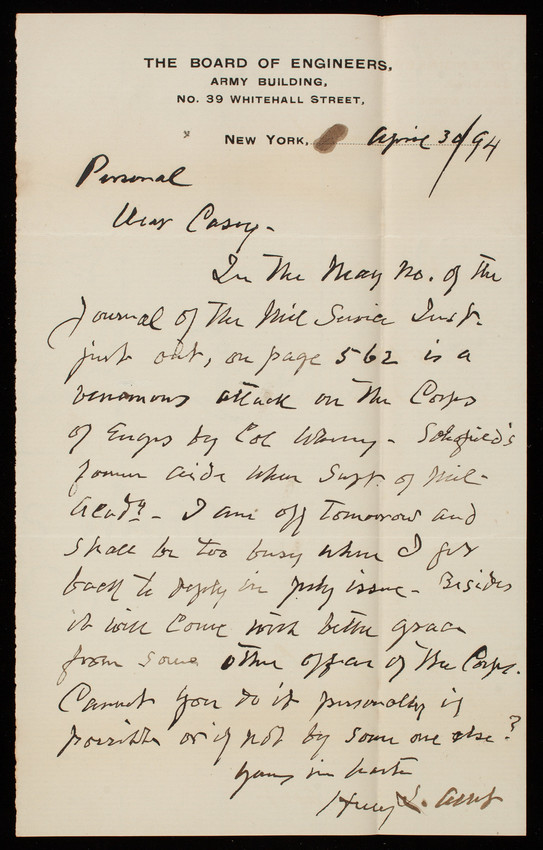 THE BOARD OF ENGINEERS,
ARMY BUILDING,
No. 39 WHITEHALL STREET,
NEW YORK, April 30/94
Personal
Dear Casey -
In the May No. of the
Journal of the Mil Service Inst.
just out, on page 562 is a
venomous attack on the Corps
of Engrs by Col Wherry - Schofield's
former aide when Supt. of Mil
Acady - I am off tomorrow and
shall be too busy when I get
back to reply in July issue - Besides
it will come with better grace
from some other officer of the Corps.
Cannot you do it personally if
possible or if not by some one else?
Yours in haste
Henry L. Abbot